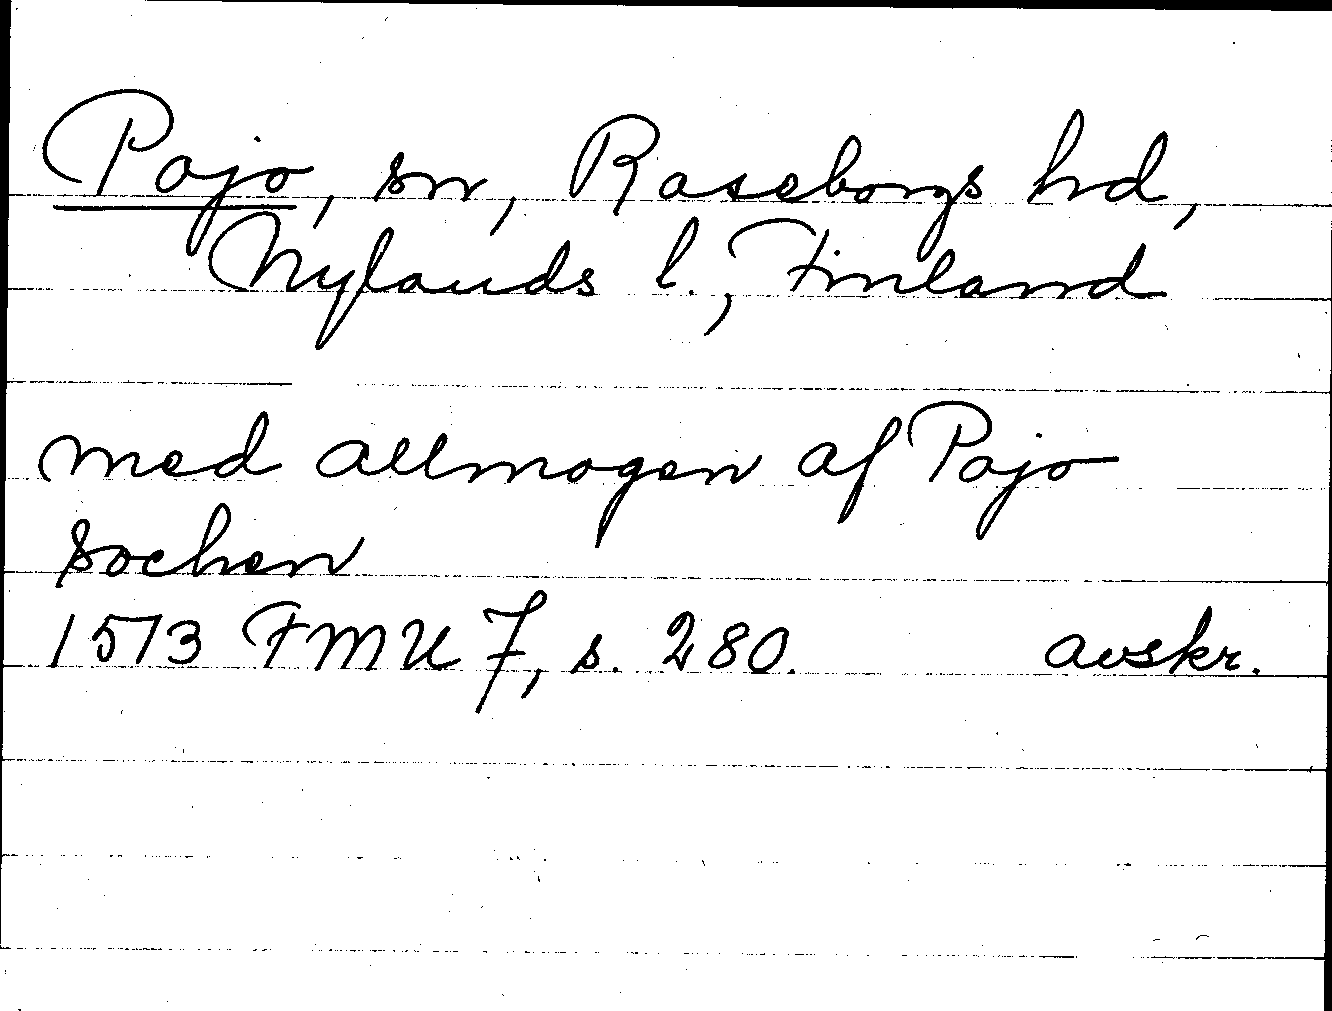 Pojo, sn, Raseborgs hd,
Nylands l., Finland
med allmogen af Pojo
sochen
1513 FMU 7, s. 280. avskr.